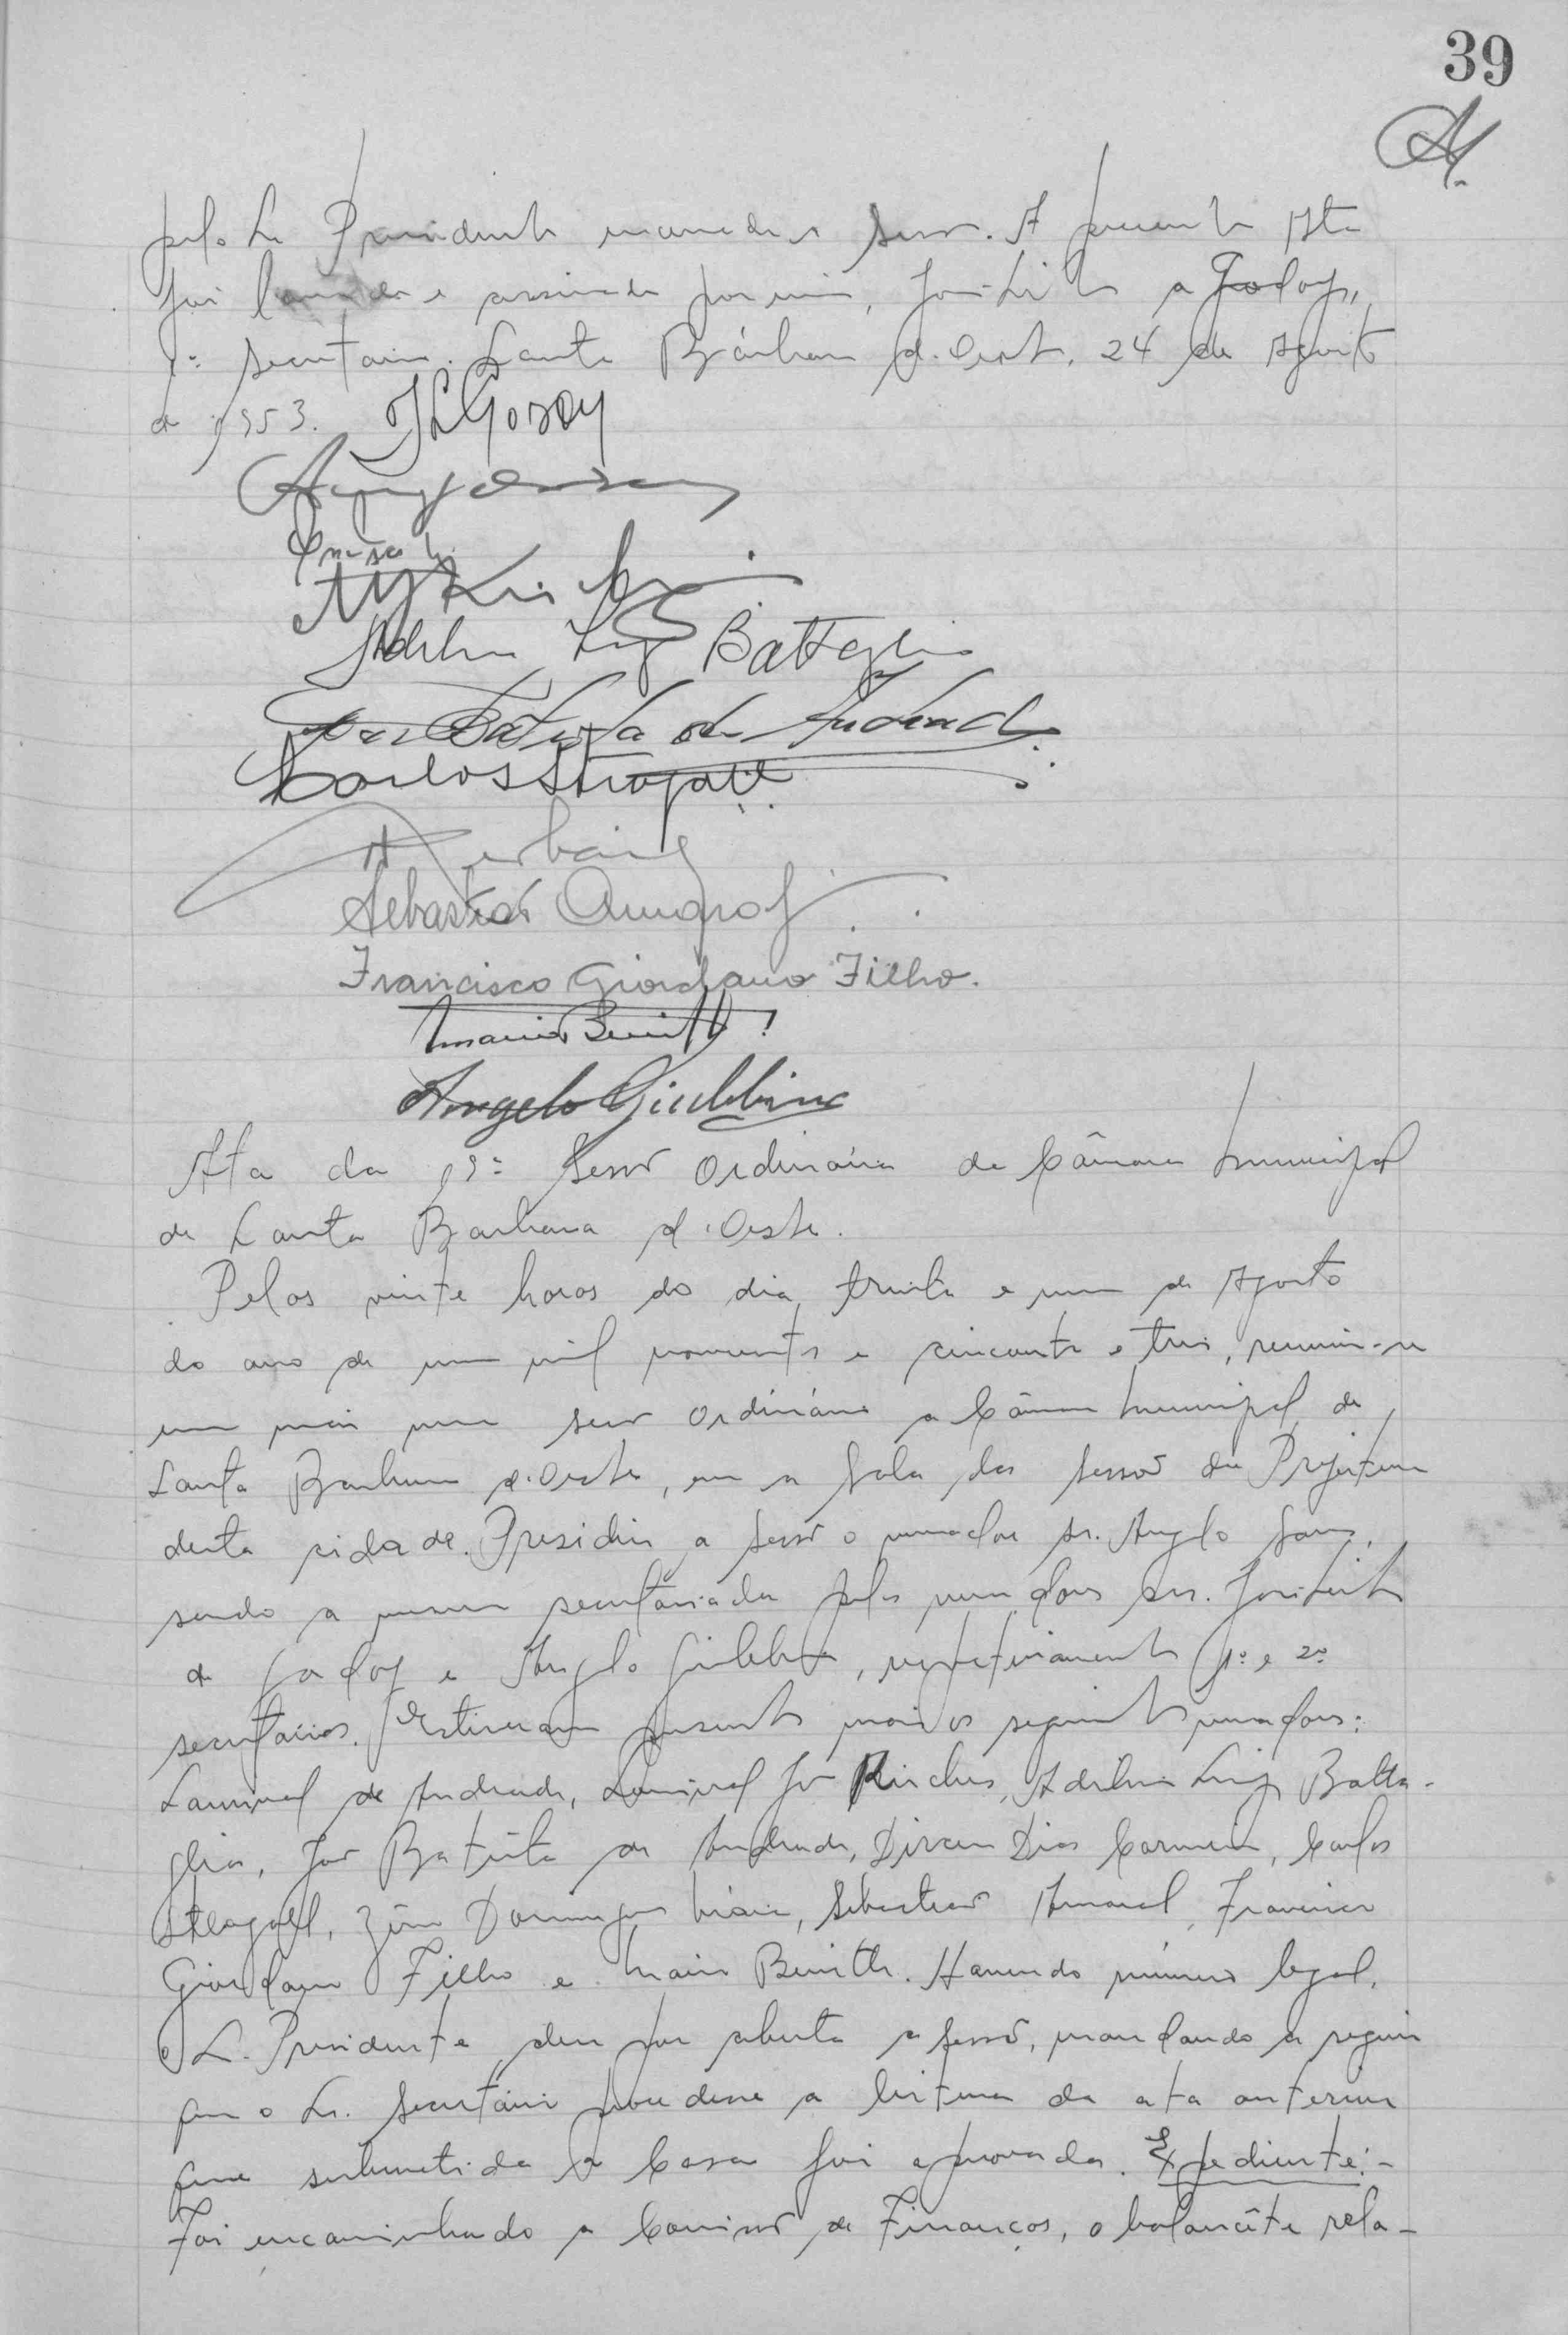 39
pelo Sr. Presidente encerrada a sessão. A presente Ata
foi lavrada e assinada por mim, José Leite de Godoy,
1º secretario. Santa Bárbara d'Oeste, 24 de Agosto
de 1953. JLGodoy
Adelino Luiz Battaglia
José Batista de Andrade
Carlos Steagall
Sebastião Amaral
Francisco Giordano Filho.
Mario Benith
Angelo Giubbina
Ata da 19ª Sessão Ordinária da Câmara Municipal
de Santa Barbara d'Oeste.
Pelas vinte horas do dia trinta e um de Agosto
do ano de um mil novecentos e cincoenta e tres, reuniu-se
em mais uma sessão Ordinária a Câmara Municipal de
Santa Barbara d'Oeste, em a Sala das Sessões da Prefeitura
desta cidade. Presidiu a sessão o vereador sr. Angelo Sans,
sendo a mesma secretariada pelos vereadores srs. José Leite
de Godoy e Angelo Giubbina, respetivamente 1º e 2º
secretários. Estiveram presente mais os seguintes vereadores:
de Andrade, José Adelino Luiz Batta-
glia, José Batista de Andrade, Dirceu Dias Carneiro, Carlos
Steagall, Domingues Sebastião Amaral, Francisco
Giordano Filho e Mario Benith. Havendo número legal,
o Sr. Presidente deu por aberta a sessão, mandando a seguir
que o Sr. Secretário procedesse a leitura da ata anterior
que submetida a Casa foi aprovada. Expediente:-
Foi encaminhado a Comissão de Finanças, o balancête rela-